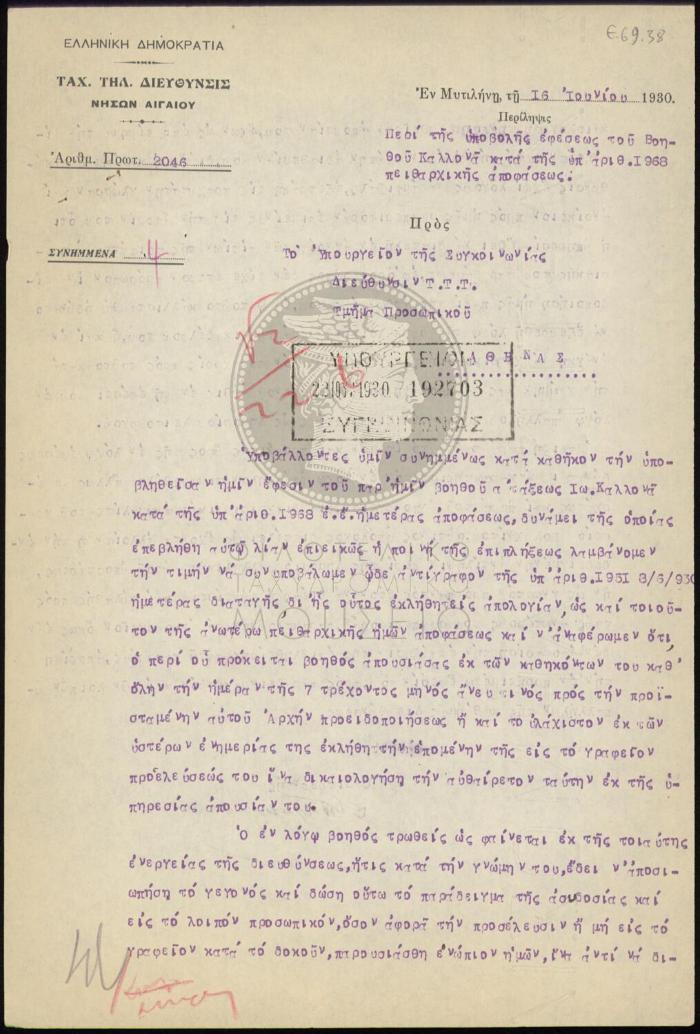 Ε.69.38
ΕΛΛΗΝΙΚΗ ΔΗΜΟΚΡΑΤΙΑ
ΤΑΧ. ΤΗΛ. ΔΙΕΥΘΥΝΣΙΣ
ΝΗΣΩΝ ΑΙΓΑΙΟΥ
Ἀριθμ. Πρωτ. 2046
ΣΥΝΗΜΜΕΝΑ 4
Ἐν Μυτιλήνῃ, τῇ 16 Ἰουνίου 1930.
Περίληψις
Περί τῆς ὑποβολῆς ἐφέσεως τοῦ Βοη-
θοῦ Καλλονᾶ κατά τῆς ὑπ'ἀριθ.1968
πειθαρχικῆς ἀποφάσεως.
Πρὸς
Τό Ὑπουργεῖον τῆς Συγκοινωνίας
Διεύθυνσιν Τ.Τ.Τ.
Τμῆμα Προσωπικοῦ
ΑΘΗΝΑΣ
ΥΠΟΥΡΓΕΙΟΝ
1930 192703
ΣΥΓΚΟΙΝΩΝΙΑΣ
Ὑποβάλλοντες ὑμῖν συνημμένως κατά καθῆκον τήν ὑπο-
βληθεῖσαν ἡμῖν ἔφεσιν τοῦ παρ'ἡμῖν βοηθοῦ α τάξεως Ιω.Καλλονᾶ
κατά τῆς ὑπ'ἀριθ.1968 ἐ.ἔ.ἡμετέρας ἀποφάσεως,δυνάμει τῆς ὁποίας
ἐπεβλήθη αὐτῷ λίαν ἐπιεικῶς ἡ ποινή τῆς ἐπιπλήξεως λαμβάνομεν
τήν τιμήν νά συνυποβάλωμεν ὧδε ἀντίγραφον τῆς ὑπ'ἀριθ.1951 8/6/930
ἡμετέρας διαταγῆς δι'ἧς οὗτος ἐκλήθη εἰς ἀπολογίαν,ὡς καί τοιοῦ-
τον τῆς ἀνωτέρω πειθαρχικῆς ἡμῶν ἀποφάσεως καί ν'ἀναφέρωμεν ὅτι
ὁ περί οὗ πρόκειται βοηθός ἀπουσιάσας ἐκ τῶν καθηκόντων του καθ'
ὅλην τήν ἡμέραν τῆς 7 τρέχοντος μηνός ἄνευ τινός πρός τήν προϊ-
σταμένην αὐτοῦ Ἀρχήν προειδοποιήσεως ἤ καί τό ἐλάχιστον ἐκ τῶν
ὑστέρων ἐνημερίας της ἐκλήθη τήν ἐπομένην τῆς εἰς τό γραφεῖον
προσελεύσεώς του ἵνα δικαιολογήσῃ τήν αὐθαίρετον ταύτην ἐκ τῆς ὑ-
πηρεσίας ἀπουσίαν του.
Ὁ ἐν λόγῳ βοηθός τρωθείς ὡς φαίνεται ἐκ τῆς τοιαύτης
ἐνεργείας τῆς διευθύνσεως,ἥτις κατά τήν γνώμην του,ἔδει ν'ἀποσι-
ωπήσῃ τό γεγονός καί δώσῃ οὕτω τό παράδειγμα τῆς ἀσυδοσίας καί
εἰς τό λοιπόν προσωπικόν,ὅσον ἀφορᾷ τήν προσέλευσιν ἤ μή εἰς τό
γραφεῖον κατά τό δοκοῦν,παρουσιάσθη ἐνώπιον ἡμῶν,ἵνα ἀντί νά δι-